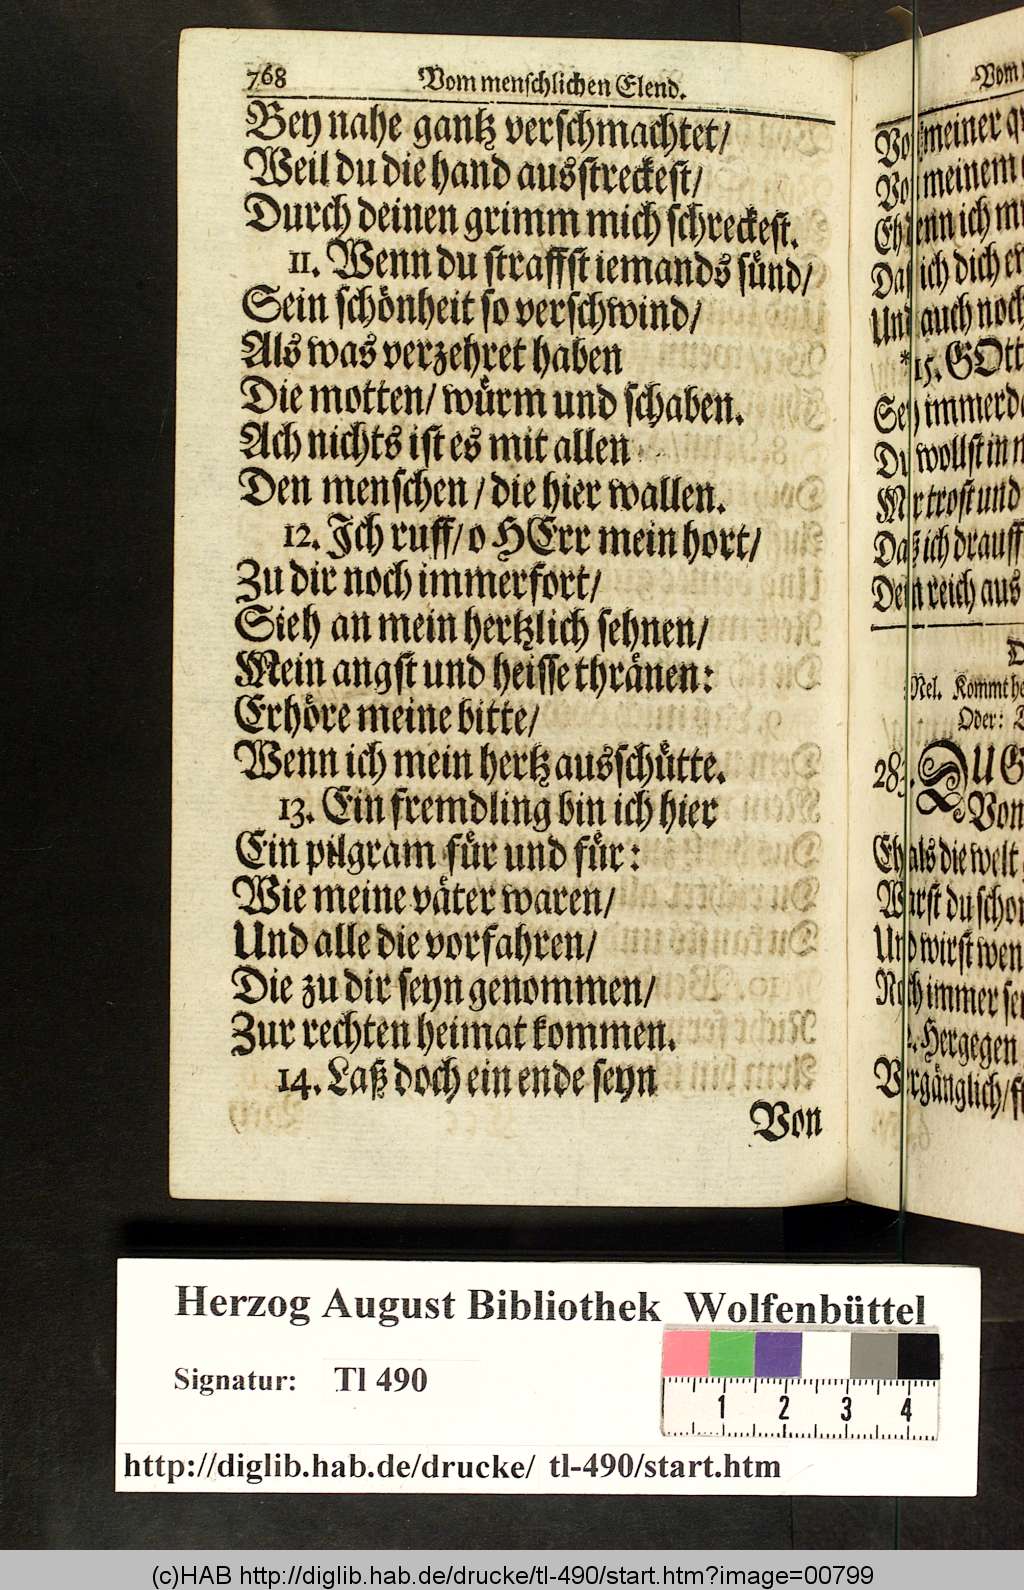 768 Vom menschlichen Elend.
Bey nahe gantz verschmachtet/
Weil du die hand ausstreckest/
Durch deinen grimm mich schreckest.
11. Wenn du straffst iemands sünd/
Sein schönheit so verschwind/
Als was verzehret haben
Die motten/ würm und schaben.
Ach nichts ist es mit allen
Den menschen/ die hier wallen.
12. Ich ruff/ o HErr mein hort/
Zu dir noch immerfort/
Sieh an mein hertzlich sehnen/
Mein angst und heisse thränen:
Erhöre meine bitte/
Wenn ich mein hertz ausschütte.
13. Ein fremdling bin ich hier
Ein pilgram für und für:
Wie meine väter waren/
Und alle die vorfahren/
Die zu dir seyn genommen/
Zur rechten heimat kommen.
14. Laß doch ein ende seyn
Von
Vom
meiner
meinem
ich
ich dich
auch noch
*15. GOtt
immer
wollst in
trost und
Daß ich drauff
Dein reich aus
Mel. Kommt
Oder:
DU
Von
Eh als die welt
Warst du schon
Und wirst
Noch immer
Hergegen
Vergänglich/
Herzog August Bibliothek Wolfenbüttel
Signatur: Tl 490
1 2 3 4
http://diglib.hab.de/drucke/ tl-490/start.htm
(c)HAB http://diglib.hab.de/drucke/tl-490/start.htm?image=00799